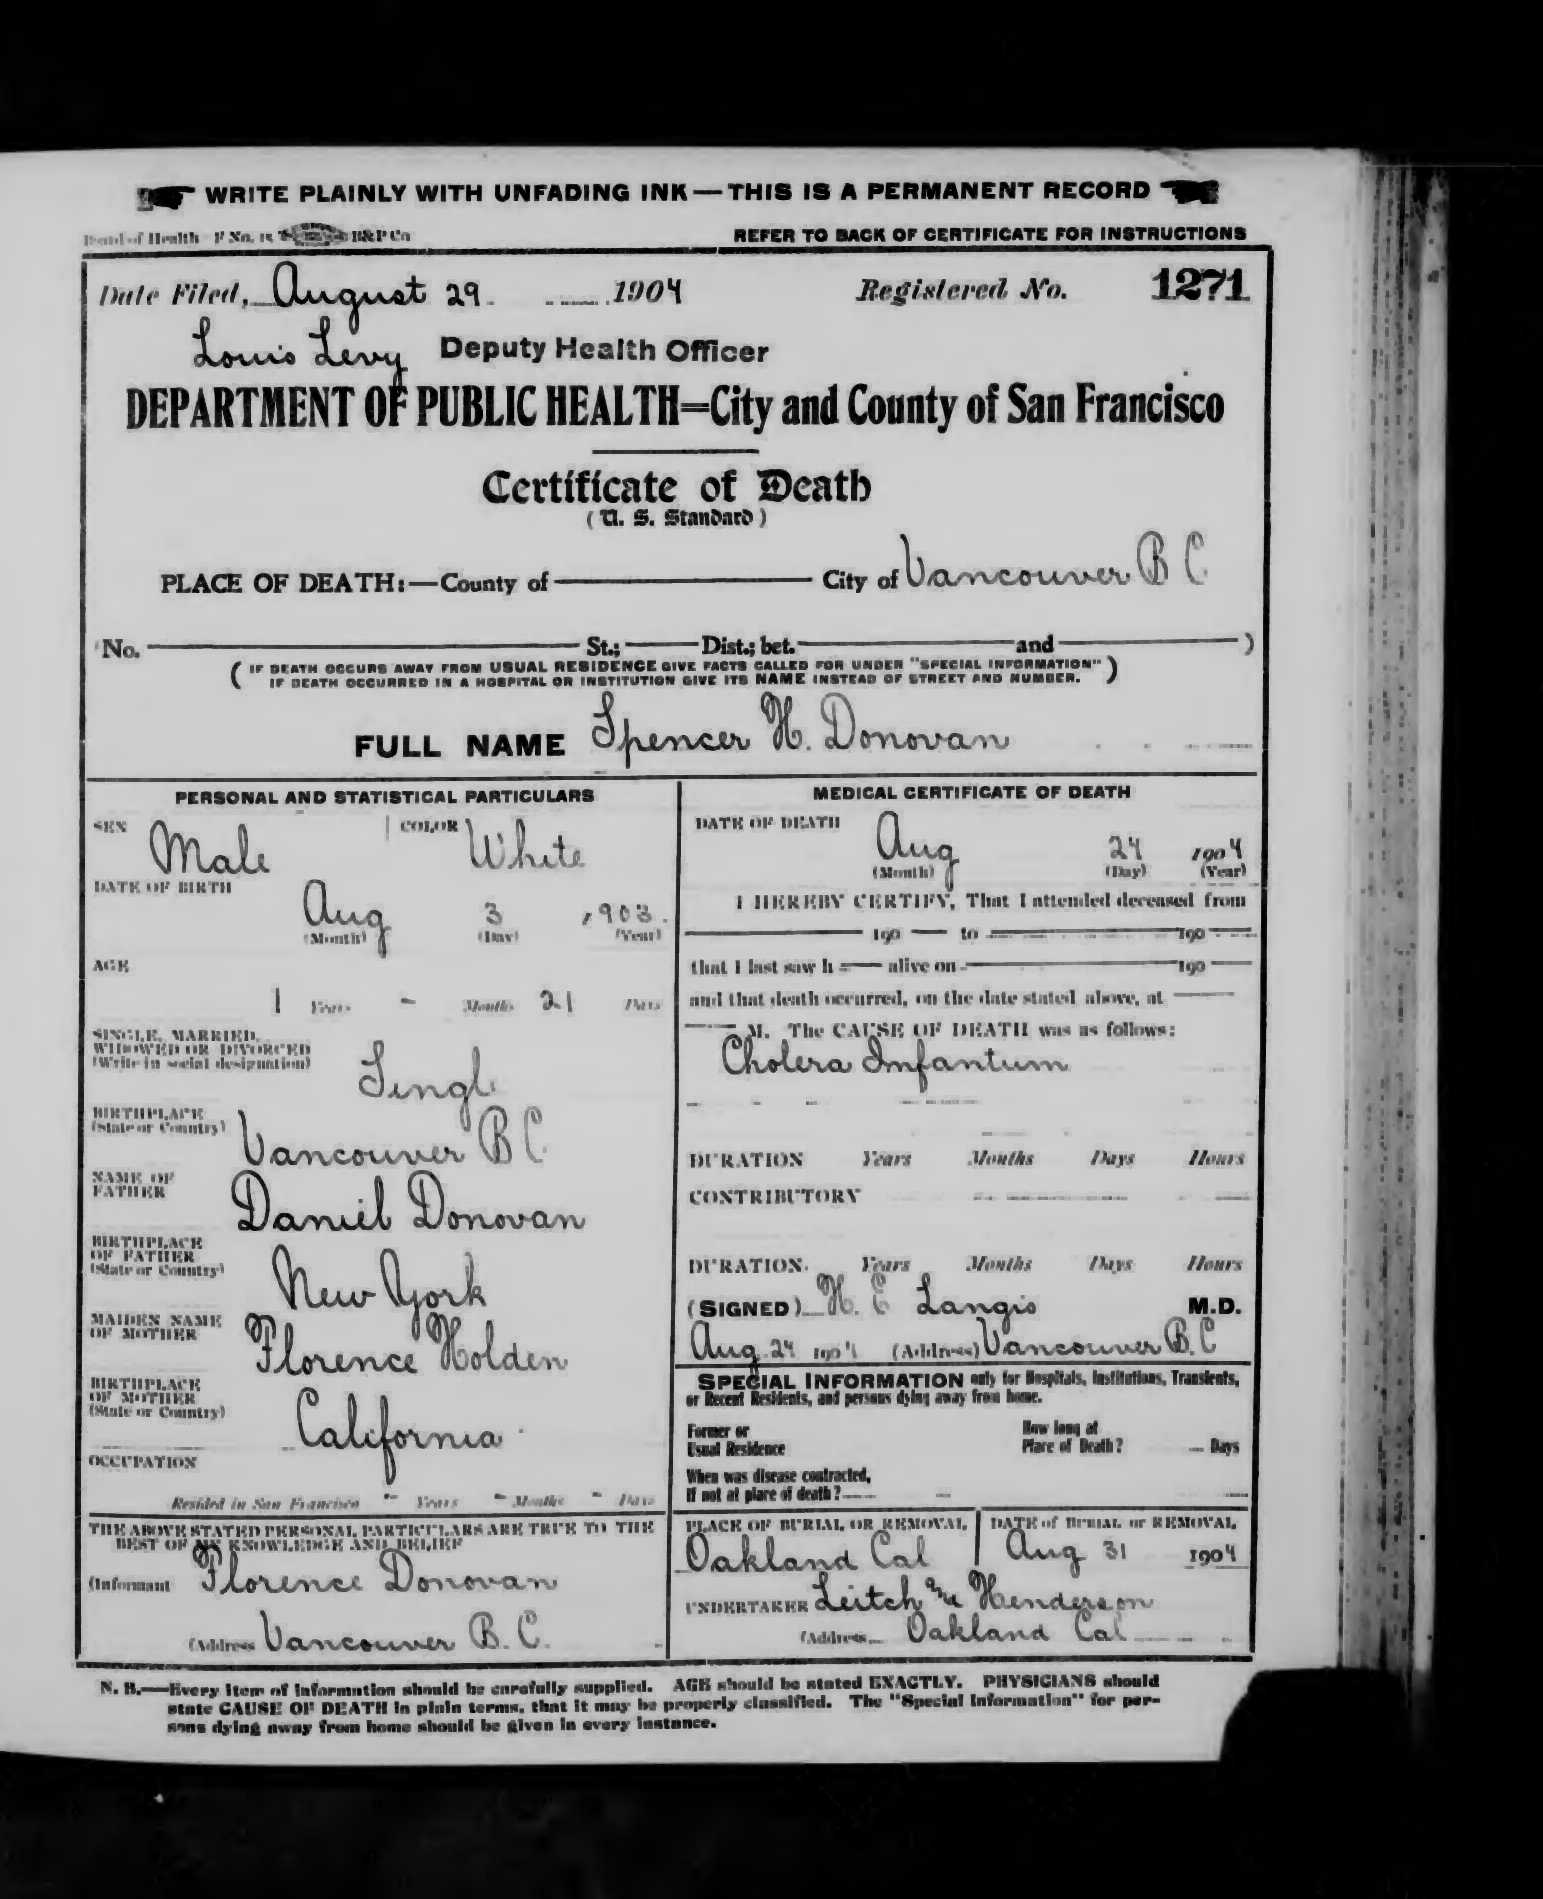 WRITE PLAINLY WITH UNFADING INK — THIS IS A PERMANENT RECORD
Board of Health F No. 15 B&P Co
REFER TO BACK OF CERTIFICATE FOR INSTRUCTIONS
Date Filed, August 29 1904 Registered No. 1271
Louis Levy Deputy Health Officer
DEPARTMENT OF PUBLIC HEALTH=City and County of San Francisco
Certificate of Death
(U. S. Standard)
PLACE OF DEATH:—County of City of Vancouver B C
(No. St.; Dist.; bet. and )
(IF DEATH OCCURS AWAY FROM USUAL RESIDENCE GIVE FACTS CALLED FOR UNDER "SPECIAL INFORMATION"
IF DEATH OCCURRED IN A HOSPITAL OR INSTITUTION GIVE ITS NAME INSTEAD OF STREET AND NUMBER.)
FULL NAME Spencer H. Donovan
PERSONAL AND STATISTICAL PARTICULARS
SEX Male COLOR White
DATE OF BIRTH
Aug 3 1903.
(Month) (Day) (Year)
AGE
1 Years - Months 21 Days
SINGLE, MARRIED,
WIDOWED OR DIVORCED
(Write in social designation) Singl
BIRTHPLACE
(State or Country) Vancouver B C
NAME OF
FATHER Daniel Donovan
BIRTHPLACE
OF FATHER
(State or Country) New York
MAIDEN NAME
OF MOTHER Florence Holden
BIRTHPLACE
OF MOTHER
(State or Country) California
OCCUPATION
Resided in San Francisco - Years - Months - Days
THE ABOVE STATED PERSONAL PARTICULARS ARE TRUE TO THE
BEST OF MY KNOWLEDGE AND BELIEF
(Informant Florence Donovan
(Address Vancouver B. C.
MEDICAL CERTIFICATE OF DEATH
DATE OF DEATH
Aug 24 1904
(Month) (Day) (Year)
I HEREBY CERTIFY, That I attended deceased from
190 to 190
that I last saw h alive on 190
and that death occurred, on the date stated above, at
M. The CAUSE OF DEATH was as follows:
Cholera Infantum
DURATION Years Months Days Hours
CONTRIBUTORY
DURATION. Years Months Days Hours
(SIGNED) H. E Langis M.D.
Aug 24 1904 (Address) Vancouver B. C
SPECIAL INFORMATION only for Hospitals, Institutions, Transients,
or Recent Residents, and persons dying away from home.
Former or
Usual Residence
How long at
Place of Death? Days
When was disease contracted,
If not at place of death?
PLACE OF BURIAL OR REMOVAL
Oakland Cal
DATE of BURIAL or REMOVAL
Aug 31 1904
UNDERTAKER Leitch and Henderson
(Address Oakland Cal
N. B.—Every item of information should be carefully supplied. AGE should be stated EXACTLY. PHYSICIANS should
state CAUSE OF DEATH in plain terms, that it may be properly classified. The "Special Information" for per-
sons dying away from home should be given in every instance.